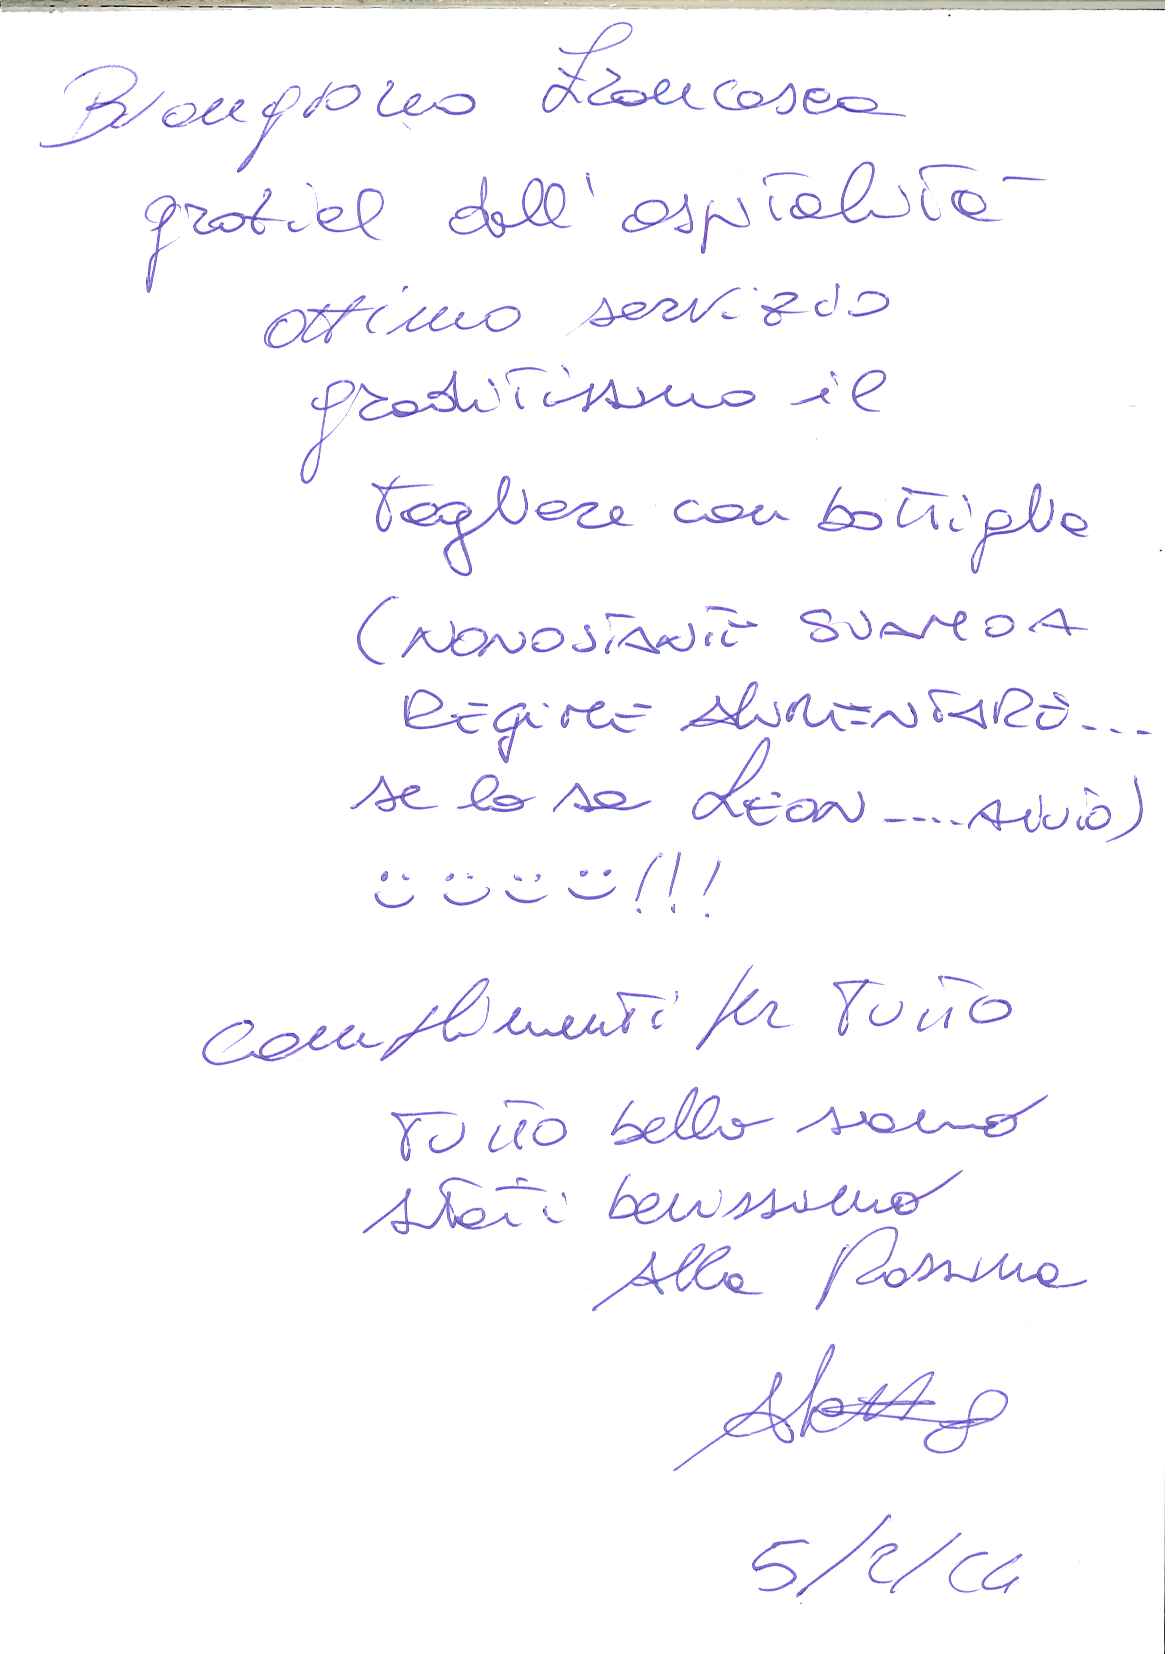 Buongiorno Francesca
grazie dell'ospitalità
ottimo servizio
graditissimo il
tagliere con bottiglia
(NONOSTANTE SIAMO A
REGIME ALIMENTARE...
se lo sa LEON....AIUIO)
!!!
complimenti per tutto
tutto bello siamo
stati benissimo
Alla Rossina
5/2/24